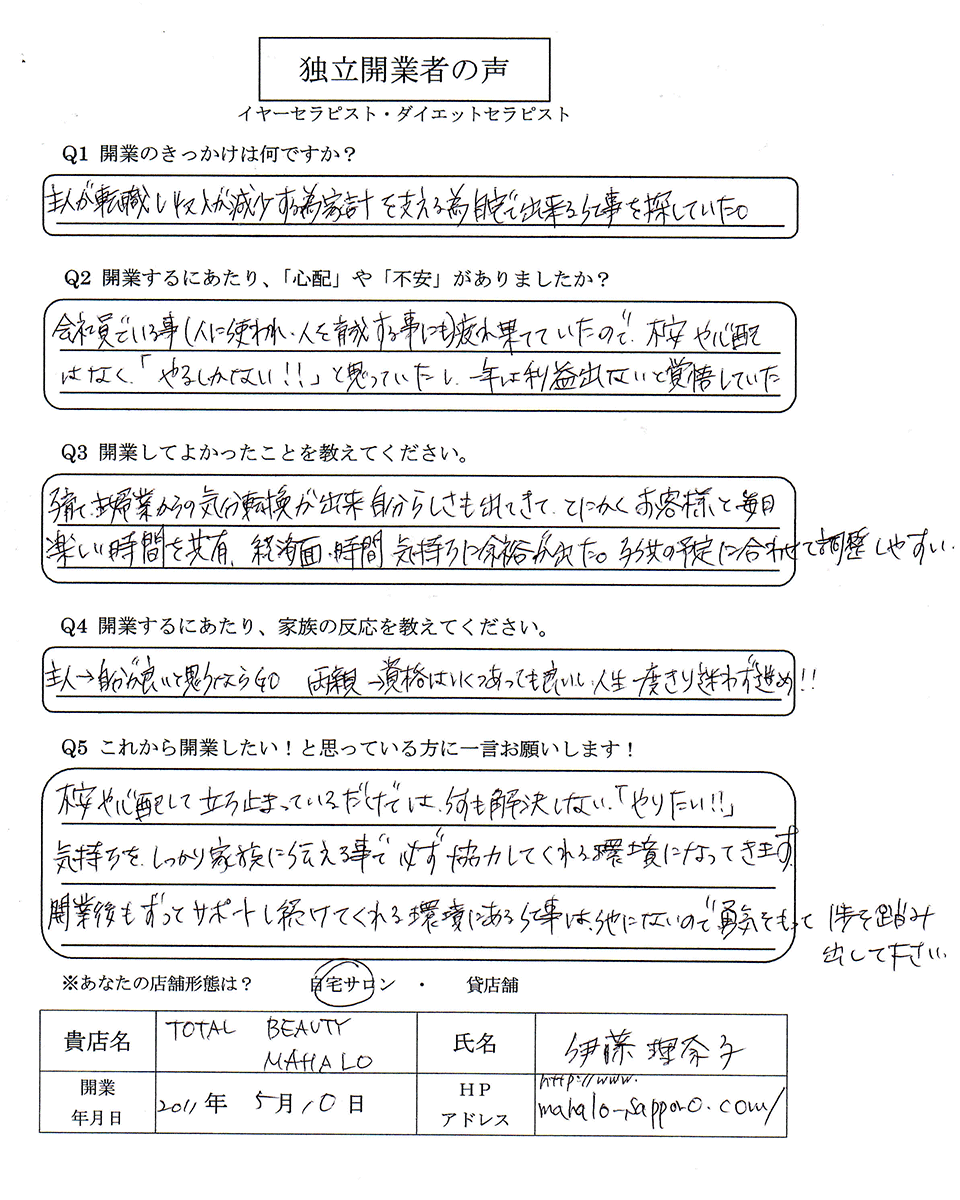 独立開業者の声
イヤーセラピスト・ダイエットセラピスト
Q1 開業のきっかけは何ですか？
主人が転職し収入が減少する為家計を支える為自宅で出来る仕事を探していた。
Q2 開業するにあたり、「心配」や「不安」がありましたか？
会社員でいる事(人に使われ、人を育成する事にも)疲れ果てていたので、不安や心配
はなく、「やるしかない!!」と思っていたし、一年は利益出ないと覚悟していた
Q3 開業してよかったことを教えてください。
子育て、主婦業からの気分転換が出来自分らしさも出てきて、とにかくお客様と毎日
楽しい時間を共有、経済面・時間 気持ちに余裕が出た。子供の予定に合わせて調整しやすい.
Q4 開業するにあたり、家族の反応を教えてください。
主人→自分が良いと思うならGO 両親→資格はいくつあっても良いし、人生一度きり迷わず進め!!
Q5 これから開業したい！と思っている方に一言お願いします！
不安や心配して立ち止まっているだけでは、何も解決しない、「やりたい!!」
気持ちを、しっかり家族に伝える事で必ず協力してくれる環境になってきます。
開業後もずってサポートし続けてくれる環境にある仕事は、他にないので勇気をもって 1歩を踏み
出して下さい.
※あなたの店舗形態は？ 自宅サロン ・ 貸店舗
貴店名 TOTAL BEAUTY MAHALO 氏名 伊藤理奈子
開業年月日 2011年 5月10日 HPアドレス http://www.mahalo-sapporo.com/